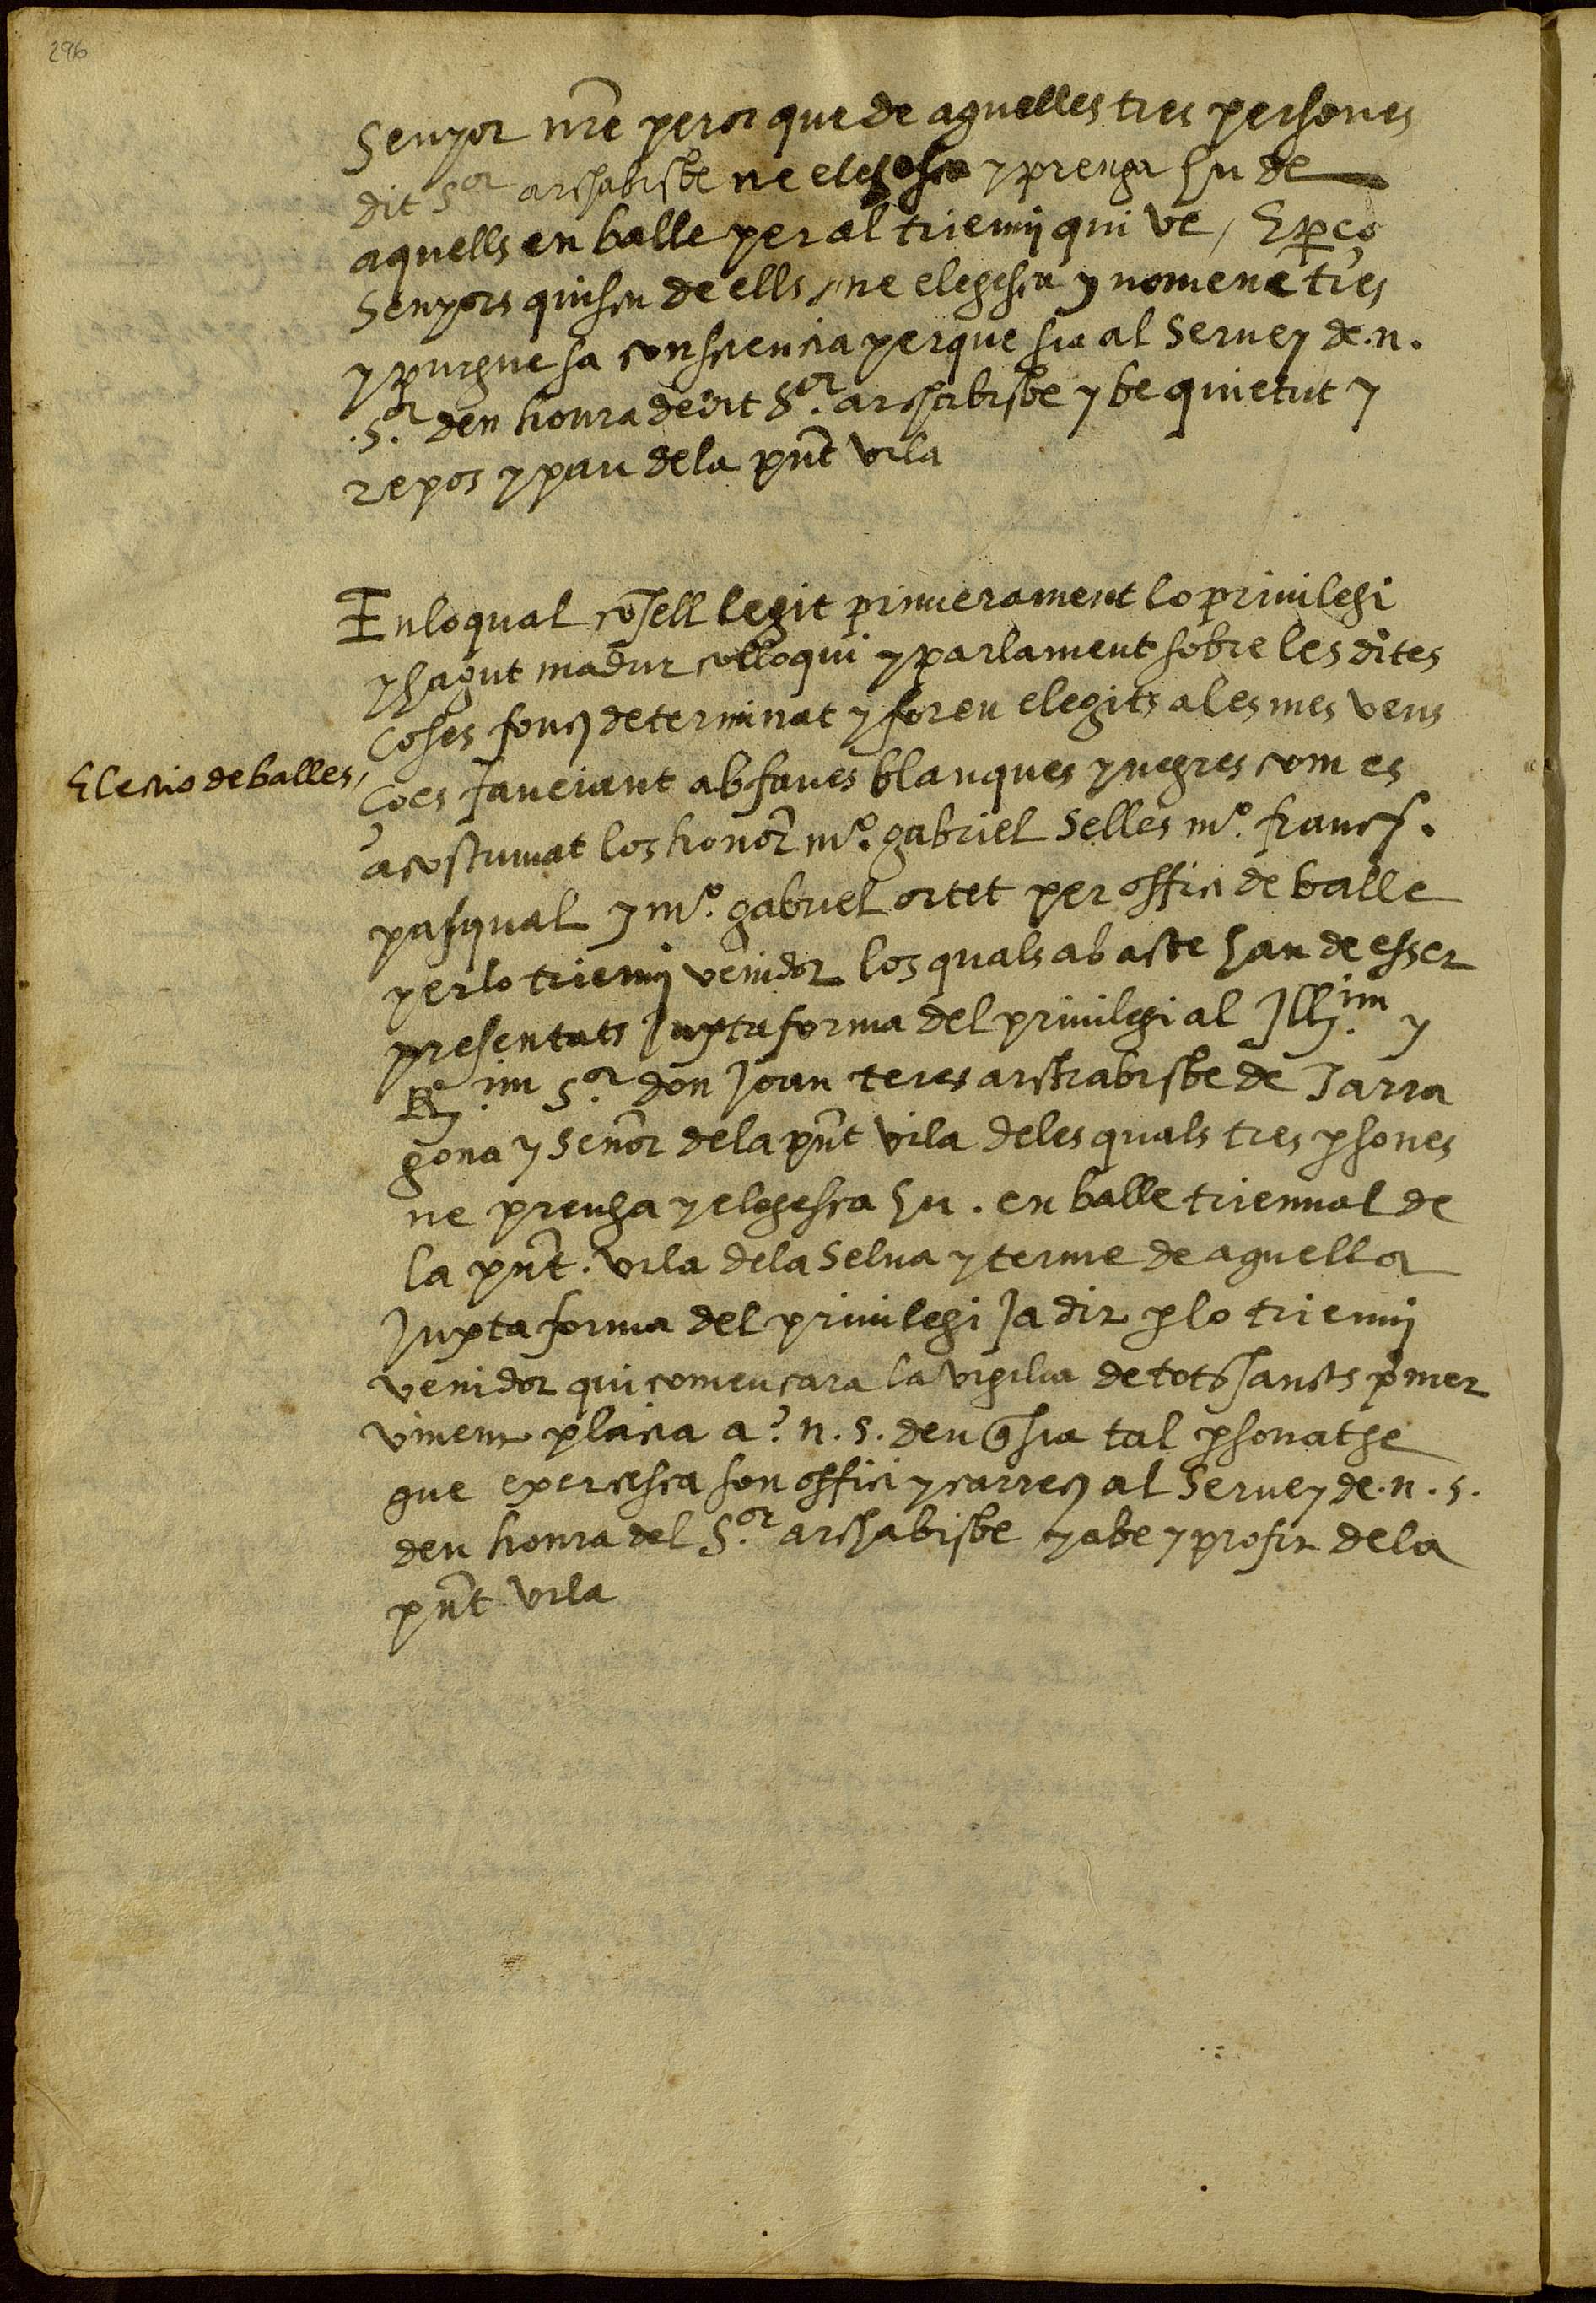 296
Senyor nre̅ pero que de aquelles tres persones
dit Sor archabisbe ne elegesca y prenga hu de
aquells en balle per al trienni qui ve / E per ço
Senyors quiscu de ells / ne elegesca y nomene tres
y purgue sa consciencia perque sia al Seruey de .n.
.Sor. deu honra de dit Sor. archabisbe y be quietut y
repos y pau de la pnt̅ vila
En lo qual co̅sell legit primerament lo priuilegi
y hagut madur colloqui y parlament sobre les dites
coses fonch determinat y foren elegits a les mes veus
Electio de balles,
ço es faueiant ab faues blanques y negres com es
acostumat los honor̅ mo. gabriel Selles mo. franch.
pasqual y mo. gabriel ortet per offici de balle
per lo trienni venidor los quals ab acte han de esser
presentats Juxta forma del priuilegi al Ill.im y
R.im Sor. don Joan teres archabisbe de Tarra
gona y Señor de la pnt̅ vila de les quals tres psones
ne prenga y elegesca hu . en balle triennal de
la pnt̅ . vila de la Selua y terme de aquella
Juxta forma del priuilegi Ja dit p lo trienni
venidor qui comensara la vigilia de tots sancts pmer
vinent placia a n . s . deu q̅ sia tal psonatge
que exercesca son offici y carrech al Seruey de . n . s .
deu honra del Sor. archabisbe y a be y profit de la
pnt̅ vila